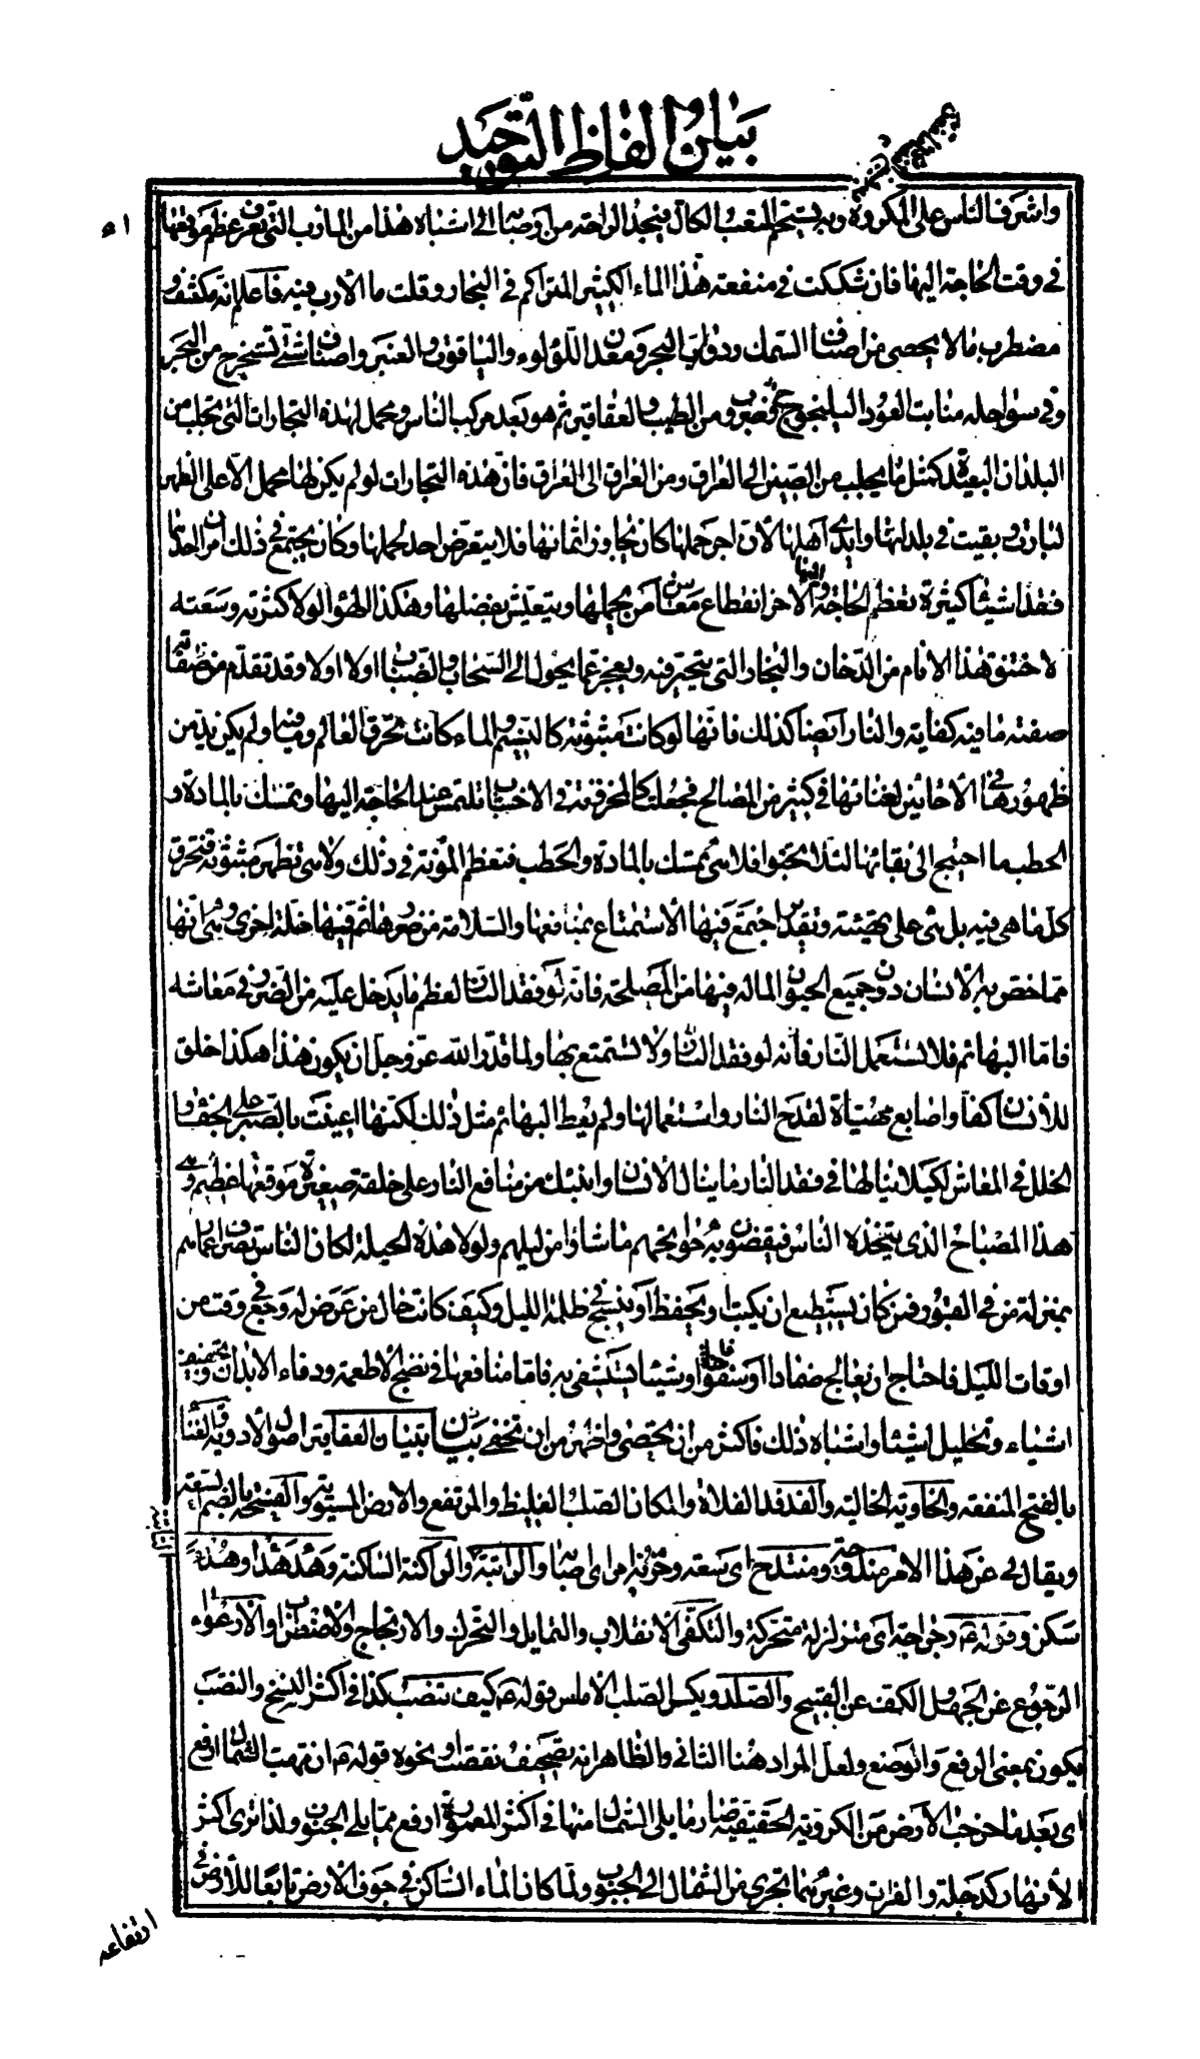 بيان الفاظ التوحيد
واشرف الناس على المكروه وبه يستحم المتعب الكال فيجد الراحة من اوصابه الى اشباه هذا من المآرب التى تعرف عظم موقعها
فى وقت الحاجة اليها فان شككت فى منفعة هذا الماء الكثير المتراكم فى البحار وقلت ما الأرب فيه فاعلم انه مكتنف و
مضطرب ما لا يحصى من اصناف السمك ودواب البحر ومعدن اللؤلؤ والياقوت والعنبر واصناف شتى تستخرج من البحر
وفى سواحله منابت العود اليلنجوج وضروب من الطيب والعقاقير ثم هو بعد مركب الناس ومحمل لهذه التجارات التى تجلب من
البلدان البعيدة كمثل ما يجلب من الصين الى العراق ومن العراق الى العراق فان هذه التجارات لو لم يكن لها محمل الا على الظهر
لبارت وبقيت فى بلدانها وايدى اهلها لان اجر حملها كان يجاوز اثمانها فلا يتعرض احد لحملها وكان يجتمع فى ذلك امران احدهما
فقد اشياء كثيرة تعظم الحاجة اليها والاخر انقطاع معاش من يحملها ويتعيش بفضلها وهكذا الهواء لولا كثرته وسعته
لاختنق هذا الانام من الدخان والبخار التى يتحير فيه ويعجز عما يحول الى السحاب والضباب اولا اولا وقد تقدم من صفاته
صفته ما فيه كفاية والنار ايضا كذلك فانها لو كانت مبثوثة كالنسيم والماء كانت تحرق العالم وما فيه ولم يكن بد من
ظهورها فى الأحايين لغنائها فى كثير من المصالح فجعلت كالمخزونة فى الاخشاب تلتمس عند الحاجة اليها وتمسك بالمادة و
الحطب ما احتيج الى بقائها لئلا تخبو فلا هى تمسك بالمادة والحطب فتعظم المؤنة فى ذلك ولا هى تظهر مبثوثة فتحرق
كل ما هى فيه بل هى على تهيئة وتقدير اجتمع فيها الاستمتاع بمنافعها والسلامة من ضررها ثم فيها خلة اخرى وهى انها
مما خص به الأنسان دون جميع الحيوان لما له فيها من المصلحة فانه لو فقد النار لعظم ما يدخل عليه من الضرر فى معاشه
فاما البهائم فلا تستعمل النار ولا تستمتع بها ولما قدر الله عز وجل ان يكون هذا هكذا خلق
للأنسان كفا واصابع مهيأة لقدح النار واستعمالها ولم يعط البهائم مثل ذلك لكنها اعينت بالصبر على الجفاء و
الخلل فى المعاش لكيلا ينالها فى فقد النار ما ينال الانسان وانبئك من منافع النار على خلقة صغيرة عظيم موقعها وهى
هذا المصباح الذى يتخذه الناس فيقضون به حوائجهم ما شاؤا من ليلهم ولولا هذه الخلة لكان الناس تصرف اعمارهم
بمنزلة من فى القبور فمن كان يستطيع ان يكتب او يحفظ او ينسج فى ظلمة الليل وكيف كانت حال من عرض له وجع فى وقت من
اوقات الليل فاحتاج ان يعالج ضمادا او سفوفا او شيئا يستشفى به فاما منافعها فى نضج الاطعمة ودفاء الابدان وتجفيف
اشياء وتحليل اشياء واشباه ذلك فاكثر من ان تحصى واظهر من ان تخفى بيان العقاقير اصول الأدوية والغناء
بالفتح المنفعة والخاوية الخالية والفدفد الفلاة والمكان الصلب الغليظ والمرتفع والارض المستوية والفسحة بالضم السعة
ويقال لى عن هذا الأمر مندوحة ومنتدح اى سعة وحزبه امر اى اصابه والراتبة والراكنة الساكنة وهدأ هدءا وهدوءا
سكن وقوله ع رجراجة اى متزلزلة متحركة والتكفى الانقلاب والتمايل والتحرك والارتجاج الاضطراب والارعواء
الرجوع عن الجهل والكف عن القبيح والصلد ويكسر الصلب الأملس قوله ع كيف تنصب كذا فى اكثر النسخ والنصب
يكون بمعنى الرفع والوضع ولعل المراد هنا الثانى والظاهر انه تصحيف نقصت او نحوه قوله ع ان مهب الشمال ارفع
اى بعد ما خرجت الأرض من الكروية الحقيقية صار ما يلى الشمال منها فى اكثر المعمورة ارفع مما يلى الجنوب ولذا ترى اكثر
الأنهار كدجلة والفرات وغيرهما تجرى من الشمال الى الجنوب ولما كان الماء الساكن فى جوف الارض تابعا للأرض فى
ارتفاعه